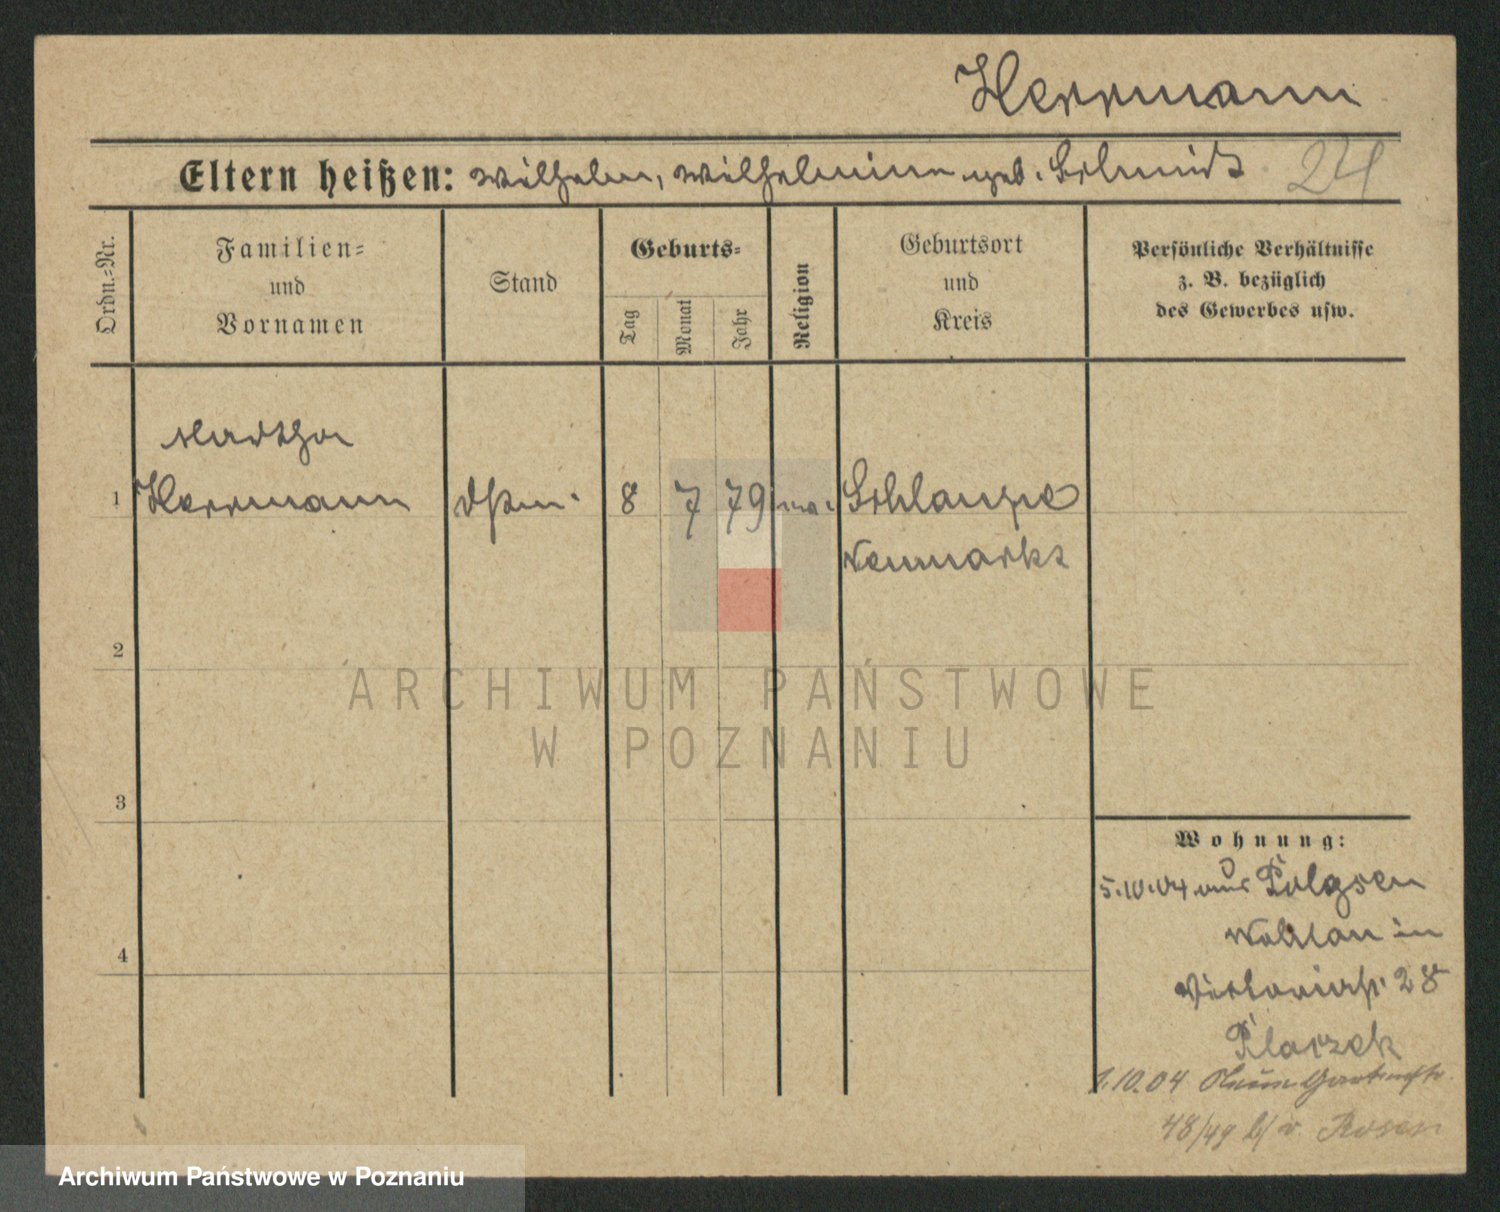 Herrmann
Eltern heißen: Wilhelm, Wilhelmine geb. Schmidt 24
Ordn.=Nr.
Familien=
und
Vornamen
Stand
Geburts=
Tag
Monat
Jahr
Religion
Geburtsort
und
Kreis
Persönliche Verhältnisse
z. B. bezüglich
des Gewerbes usw.
Martha
1 Herrmann 8 7 79 Schlaupe
Neumarkt
2
ARCHIWUM PAŃSTWOWE
W POZNANIU
3
Wohnung:
5.10.04 aus Polgsen
Wohlau in
Victoriastr. 28
4
1.10.04 Gartenstr.
48/49 b/ v. Rosen
Archiwum Państwowe w Poznaniu